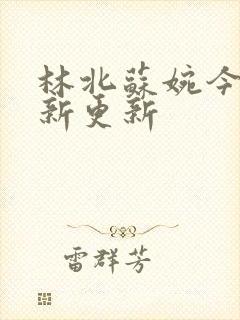 林北蘇婉今
新更新
雷群芳